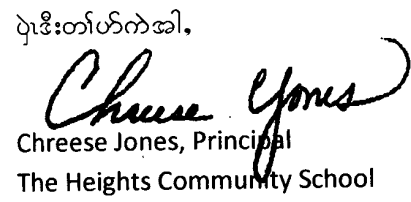 ပှဲၤဒီးတၢ်ပာ်ကဲအါ,
Chreese Jones
Chreese Jones, Principal
The Heights Community School